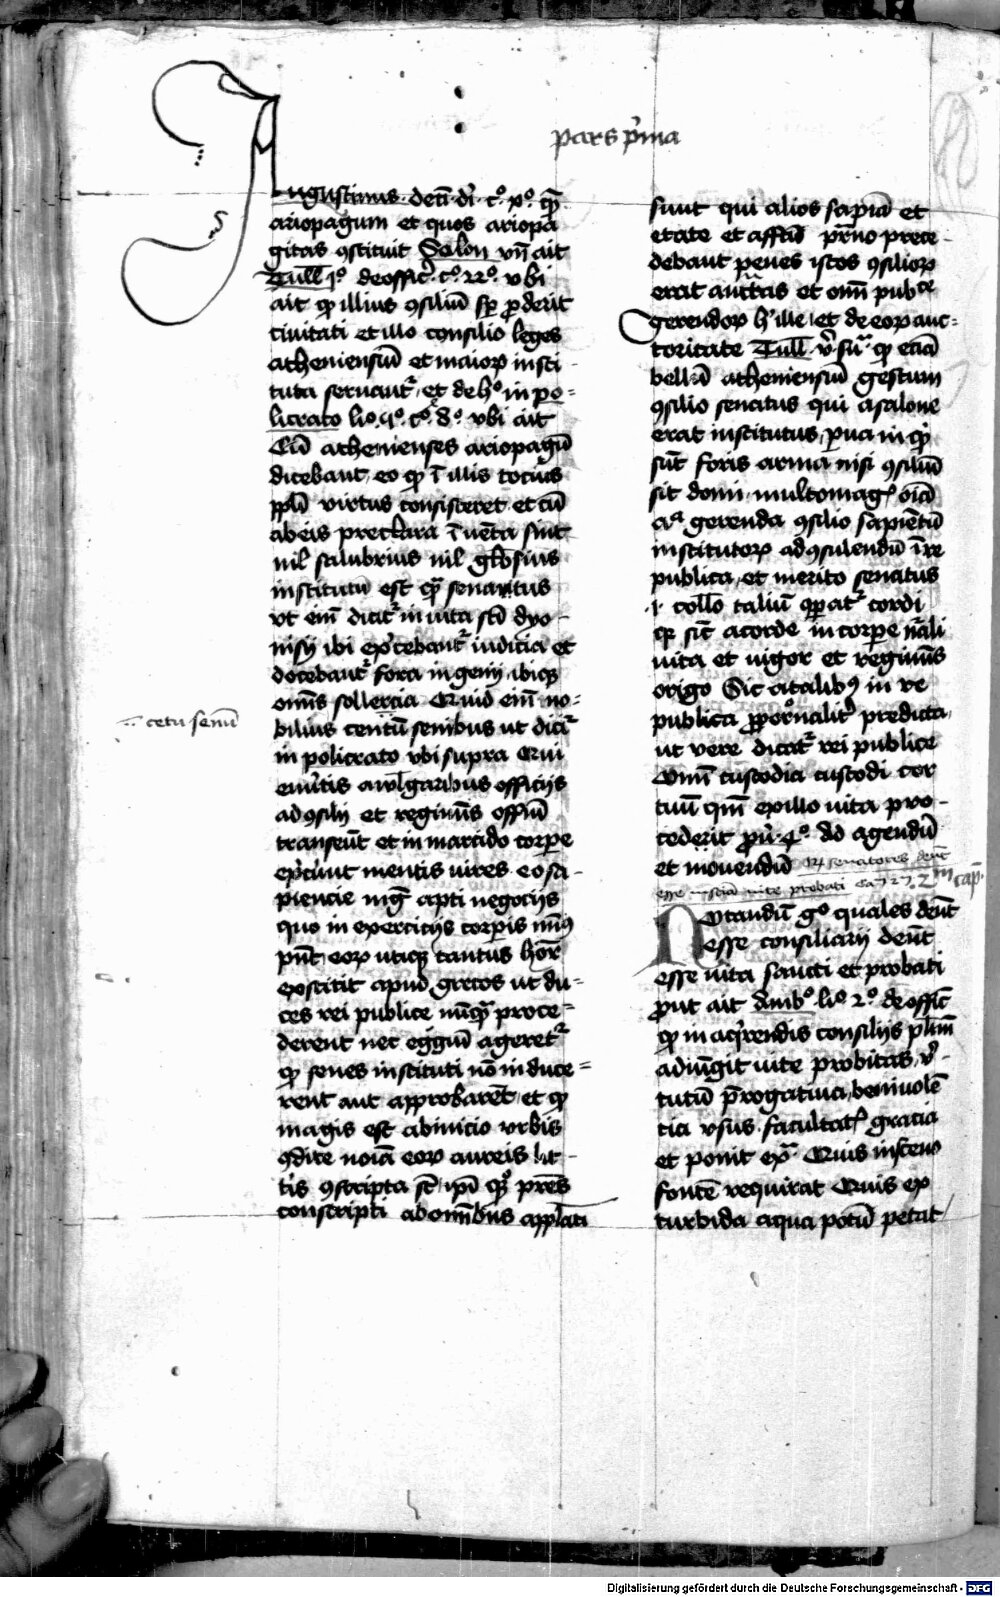 pars p̄ma
Augustinus de ci. di. c.o x.o q̄
ariopagum et quos ariopa
gitas ꝯstituit Solon vn̄ ait
Tull̄ j.o de offic̄. c.o 22.o vbi
ait ꝙ illius ꝯsiliū sꝑ ꝓderit
ciuitati et illo consilio leges
atheniensiū et maioꝝ insti
tuta seruant᷑. et de h.o in po-
licrato li.o c.o vbi ait
Cū athenienses ariopagū
dicebant eo ꝙ ī illis tocius
ppli virtus consisteret et cū
ab eis preclara īuenta sint
nil salubrius nil gl̄osius
institutū est q̄ senatus
vt em̄ dicit᷑ in uita sc̄i dyo
nisy ibi ex̓cebant᷑ iudicia et
docebant᷑ fora ingenij ibiqꝫ
om̄s sollercia Quid em̄ no-
bilius centū senibus ut dicit᷑
in policrato vbi supra Qui
em̓itis a wlgaribus officijs
ad ꝯsilij et regimīs offiū
transeūt et in marcido corpe
ex̓cūt mentis uires eo sa-
piencie mg̓ apti negocijs
quo in exercitijs corpis min᷒
pn̄t eoꝝ utiqꝫ tantus honor
exstitit apud grecos ut du-
ces rei publice nūqꝫ proce-
derent nec egregiū ageret᷑
ꝙ senes instituti nō induce-
rent aut approbarēt et ꝙ
magis est ab inicio vrbis
ꝯdite noīa eoꝝ aureis lit-
t̓is ꝯscripta st̄ ip̄i qꝫ pr̄es
conscripti ab om̄ibus appl̄ati
cetu senū
sunt qui alios sapīa et
etate et affc̄u pr̄no prece-
debant penes istos ꝯsilioꝝ
erat auct̄itas et om̄ pub.ce
gerendoꝝ h ille et de eoꝝ auc-
toritate Tull̄ v̓ su.a ꝙ eciā
bellū atheniensiū gestum
ꝯsilio senatus qui a salone
erat institutus. parua inqͥ
sūt foris arma nisi ꝯsiliū
sit domi. multomag̓ oīa
gerenda ꝯsilio sapientū
institutoꝝ ad ꝯsulendū ī re
publica et merito senatus
.i. coll̄o taliū ꝯparat᷑ cordi
qꝛ sic̄ a corde in corpe nāli
uita et uigor et regimīs
origo Sic a talibꝫ in re
publica ꝓporc̄onalit̓ predicta
ut vere dicat᷑ rei publice
Om̄i custodia custodi cor
tuū qm̄ ex illo uita pro-
cederit ꝓu. 4.o. ad agendū
et mouendū
Qꝫ senatores dent
esse in sc̄ia uite probati Ca 2m cap.
Notandū g.o quales dent
esse consiliarij dent
esse uita sancti et probati
ꝓut ait Amb.o li.o 2.o de offic̄
ꝙ in acq̓rendis consilijs pl̄im̄
adiūgit uite probitas v̓-
tutū p̄rogatiua beniuolē
tia vsus. facultat̓ gracia
et ponit ex.a Quis in ceno
fontē requirat Quis ex
turbida aqua potū petat